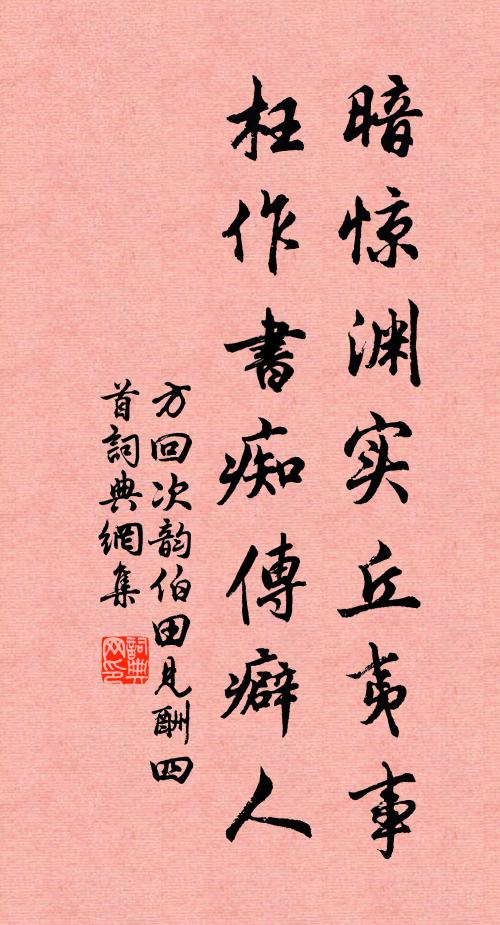 暗惊渊实丘夷事
枉作書痴傳癖人
方回次韵伯田見酬四
首詞典網集
詞典
网印